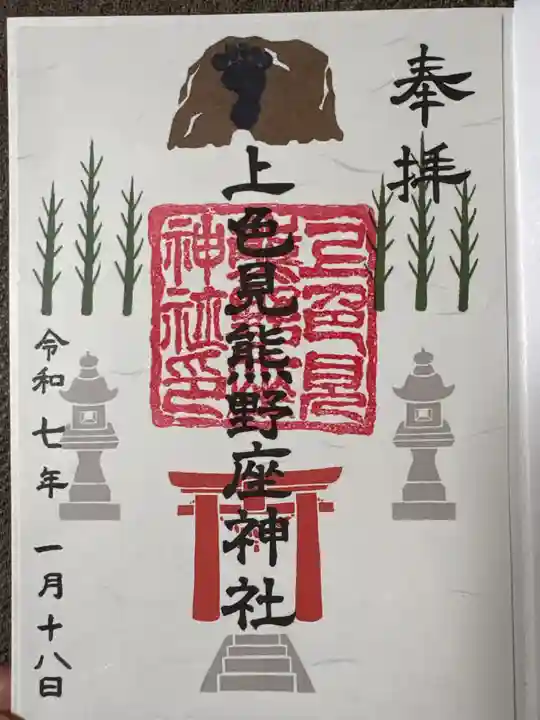 奉拝
上色見熊野座神社
上色見
熊野座
神社印
令和七年 一月十八日